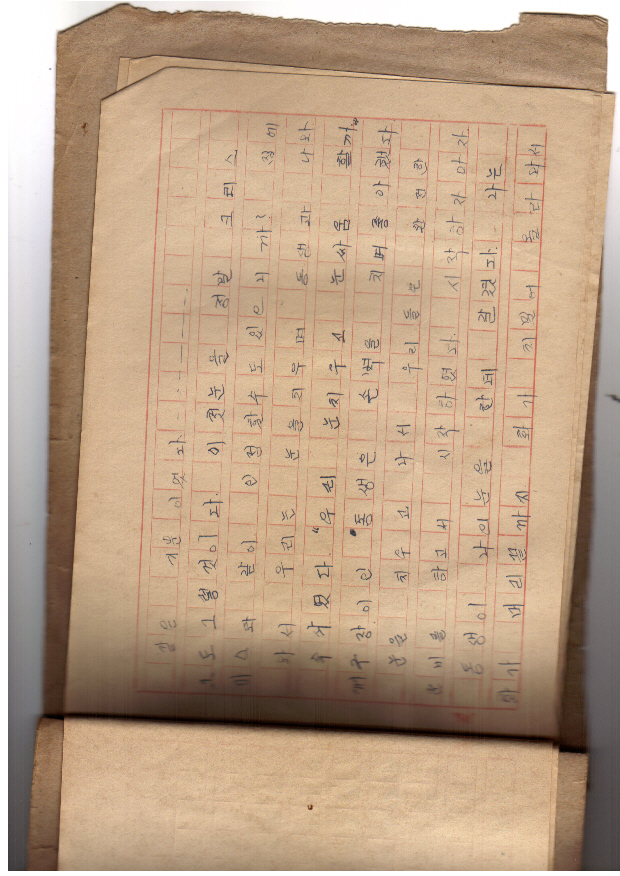 같은 기분 이었다.
도 그렇 것이다. 이 첫눈을 정말 크리스
마스와 같이 인정 할수도 있으니까! 집에
와서 우리는 눈을 치우며 동생과 나와
속삭였다. "우리 눈치우고 눈싸움 할까"
꾸장이인 동생은 손벽을 치며 좋아했다
눈을 치우고 나서 우리들은 완전한
준비를 하고서 시작하였다. 시작하자 마자
동생이 나의눈을 한데 갈겼다. 나는
화가 머리끝까지 화가 치밀어 올라와서